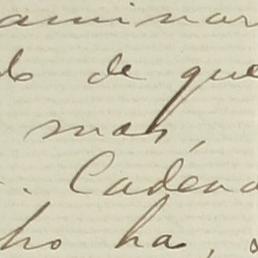 aminar
do de que
mas,
. Cadena
cho ha, s